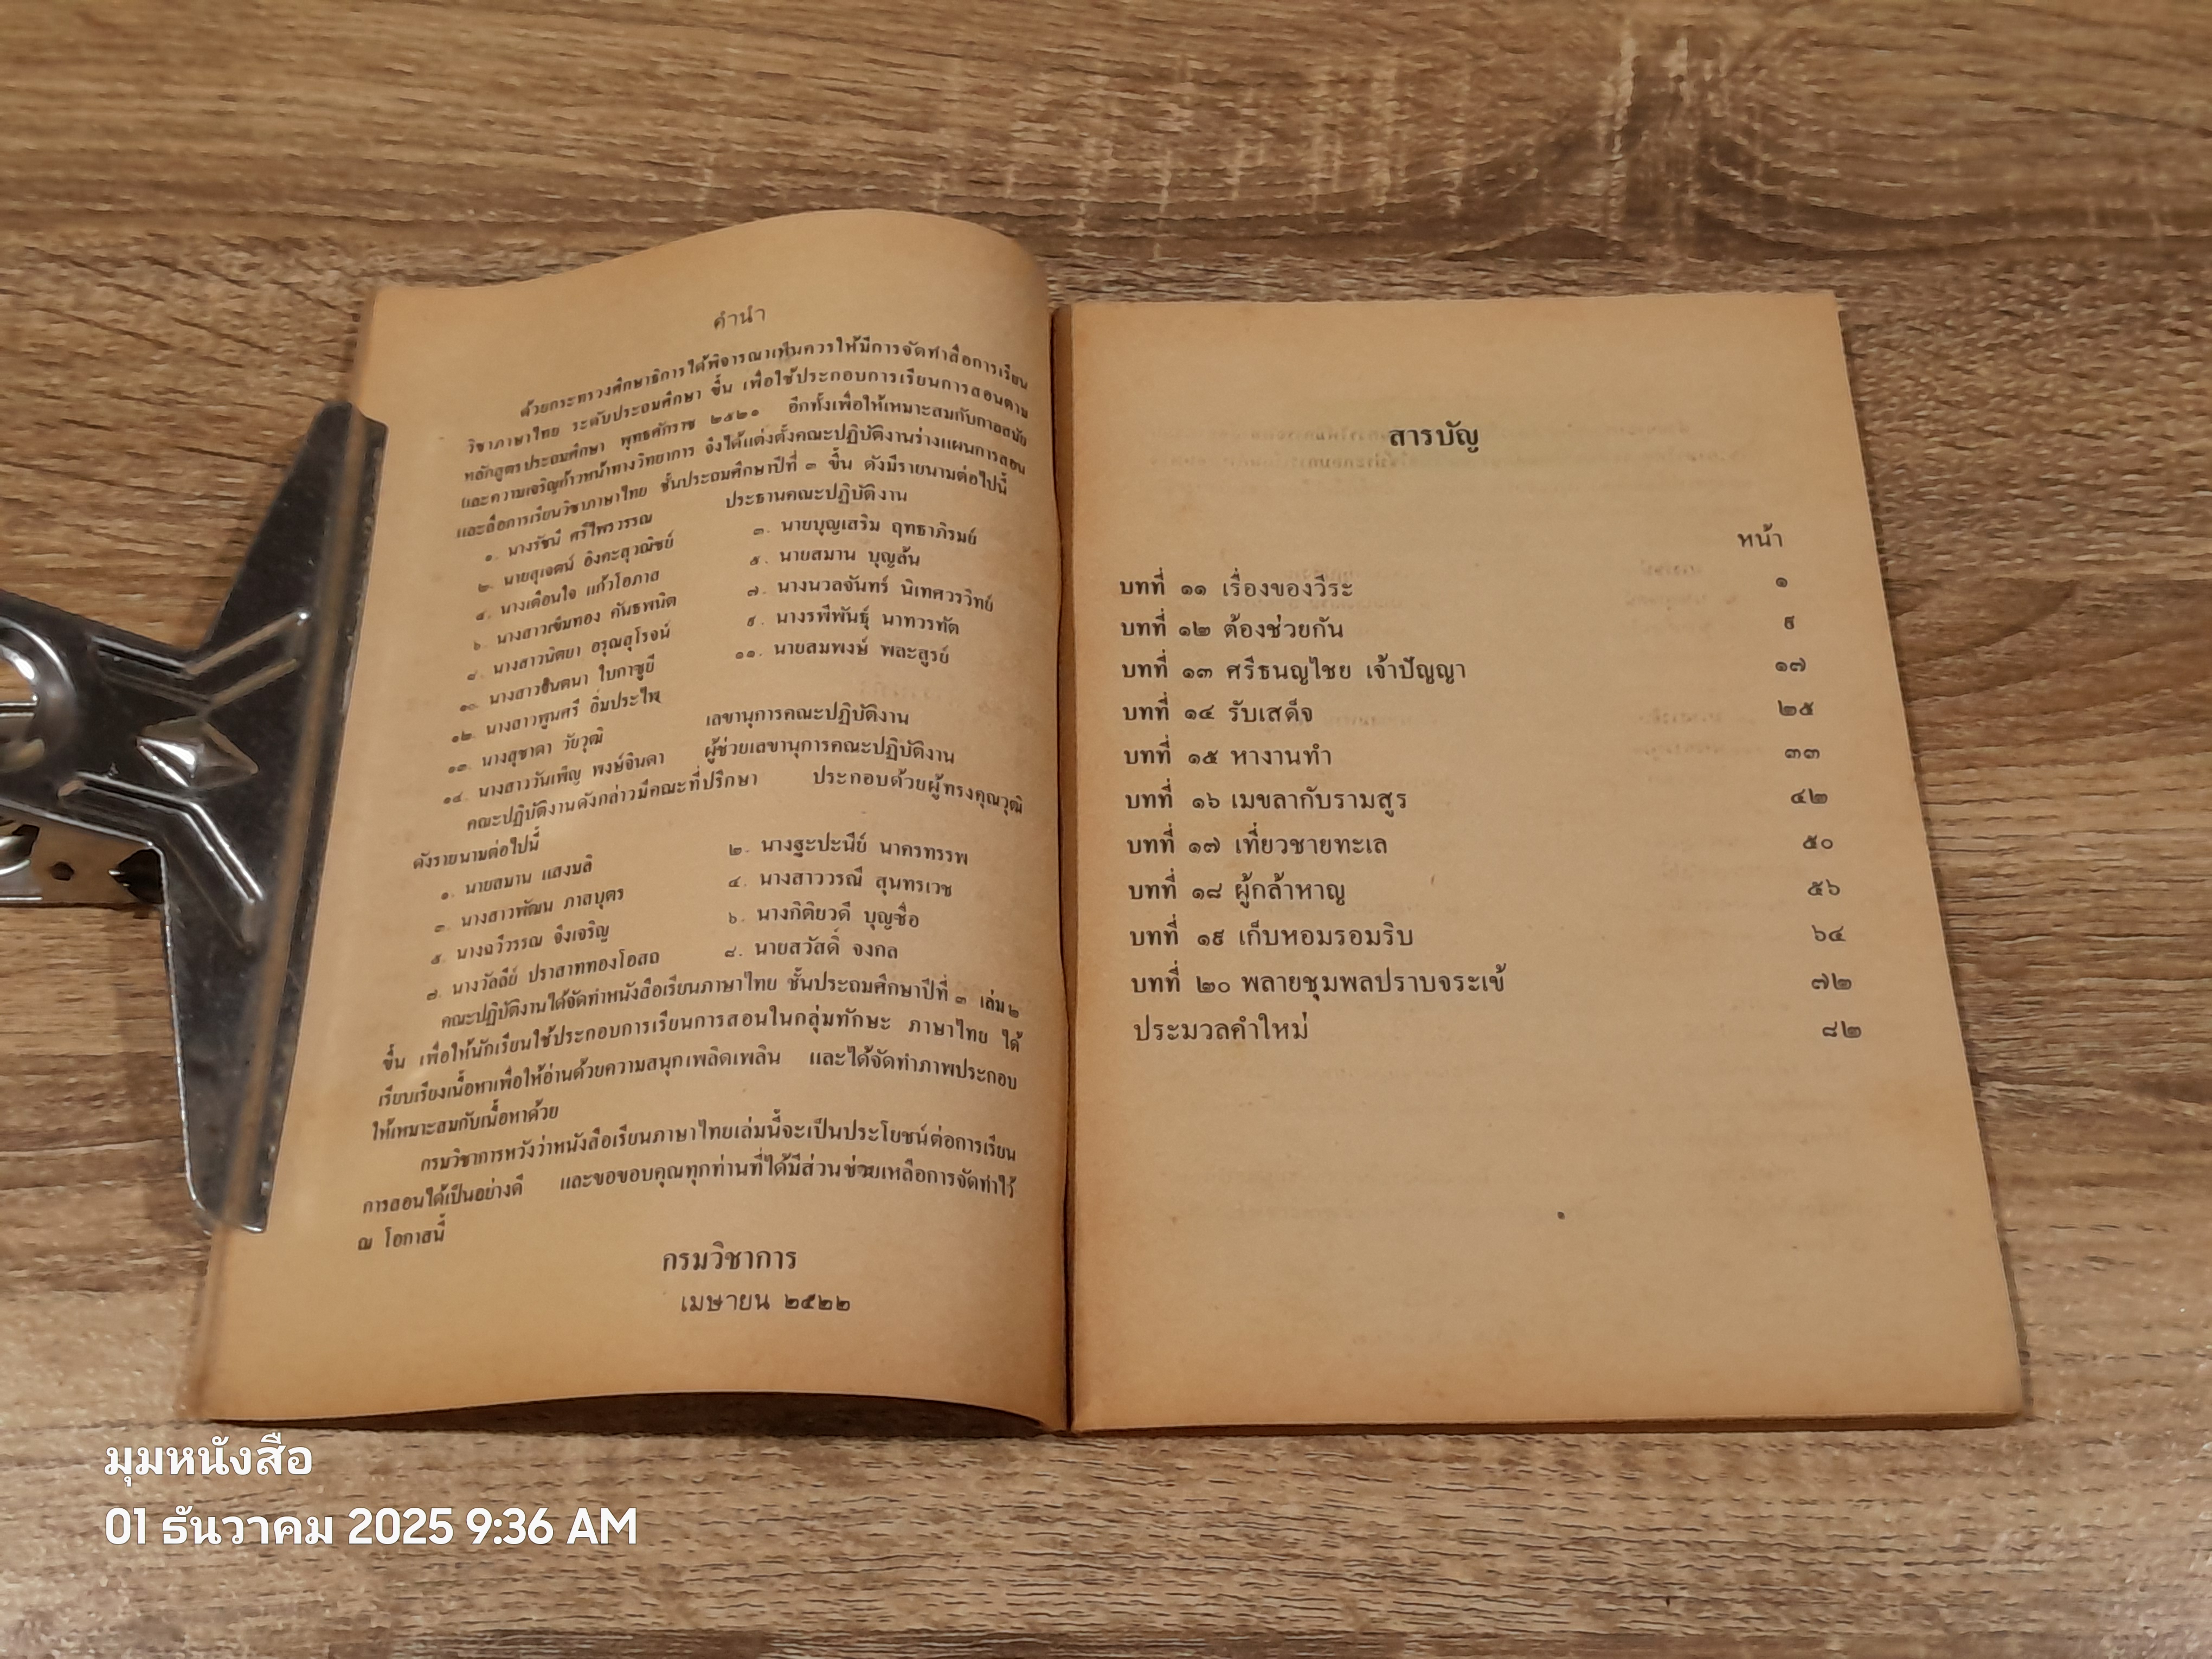 คำนำ
ด้วยกระทรวงศึกษาธิการได้พิจารณาเห็นควรให้มีการจัดทำสื่อการเรียน
วิชาภาษาไทย ระดับประถมศึกษา ขึ้น เพื่อใช้ประกอบการเรียนการสอนตาม
หลักสูตรประถมศึกษา พุทธศักราช ๒๕๒๑ อีกทั้งเพื่อให้เหมาะสมกับกาลสมัย
และความเจริญก้าวหน้าทางวิทยาการ จึงได้แต่งตั้งคณะปฏิบัติงานร่างแผนการสอน
และสื่อการเรียนวิชาภาษาไทย ชั้นประถมศึกษาปีที่ ๓ ขึ้น ดังมีรายนามต่อไปนี้
๑. นางรัชนี ศรีไพรวรรณ ประธานคณะปฏิบัติงาน
๒. นายสุเจตน์ อิงคะสุวณิชย์ ๓. นายบุญเสริม ฤทธาภิรมย์
๔. นางเตือนใจ แก้วโอภาส ๕. นายสมาน บุญล้น
๖. นางสาวเข็มทอง คันธพนิต ๗. นางนวลจันทร์ นิเทศวรวิทย์
๘. นางสาวนิตยา อรุณสุโรจน์ ๙. นางรพีพันธุ์ นาทวรทัต
๑๐. นางสาวจินตนา ใบกาซูยี ๑๑. นายสมพงษ์ พละสูรย์
๑๒. นางสาวพูนศรี อิ่มประไพ
๑๓. นางสุชาดา วัยวุฒิ เลขานุการคณะปฏิบัติงาน
๑๔. นางสาววันเพ็ญ พงษ์จินดา ผู้ช่วยเลขานุการคณะปฏิบัติงาน
คณะปฏิบัติงานดังกล่าวมีคณะที่ปรึกษา ประกอบด้วยผู้ทรงคุณวุฒิ
ดังรายนามต่อไปนี้
๑. นายสมาน แสงมลิ ๒. นางฐะปะนีย์ นาครทรรพ
๓. นางสาวพัฒน ภาสบุตร ๔. นางสาววรณี สุนทรเวช
๕. นางฉวีวรรณ จึงเจริญ ๖. นางกิติยวดี บุญซื่อ
๗. นางวัลลีย์ ปราสาททองโอสถ ๘. นายสวัสดิ์ จงกล
คณะปฏิบัติงานได้จัดทำหนังสือเรียนภาษาไทย ชั้นประถมศึกษาปีที่ ๓ เล่ม ๒
ขึ้น เพื่อให้นักเรียนใช้ประกอบการเรียนการสอนในกลุ่มทักษะ ภาษาไทย ได้
เรียบเรียงเนื้อหาเพื่อให้อ่านด้วยความสนุกเพลิดเพลิน และได้จัดทำภาพประกอบ
ให้เหมาะสมกับเนื้อหาด้วย
กรมวิชาการหวังว่าหนังสือเรียนภาษาไทยเล่มนี้จะเป็นประโยชน์ต่อการเรียน
การสอนได้เป็นอย่างดี และขอขอบคุณทุกท่านที่ได้มีส่วนช่วยเหลือการจัดทำไว้
ณ โอกาสนี้
กรมวิชาการ
เมษายน ๒๕๒๒
สารบัญ
หน้า
บทที่ ๑๑ เรื่องของวีระ ๑
บทที่ ๑๒ ต้องช่วยกัน ๙
บทที่ ๑๓ ศรีธนญไชย เจ้าปัญญา ๑๗
บทที่ ๑๔ รับเสด็จ ๒๕
บทที่ ๑๕ หางานทำ ๓๓
บทที่ ๑๖ เมขลากับรามสูร ๔๒
บทที่ ๑๗ เที่ยวชายทะเล ๕๐
บทที่ ๑๘ ผู้กล้าหาญ ๕๖
บทที่ ๑๙ เก็บหอมรอมริบ ๖๔
บทที่ ๒๐ พลายชุมพลปราบจระเข้ ๗๒
ประมวลคำใหม่ ๘๒
มุมหนังสือ
01 ธันวาคม 2025 9:36 AM